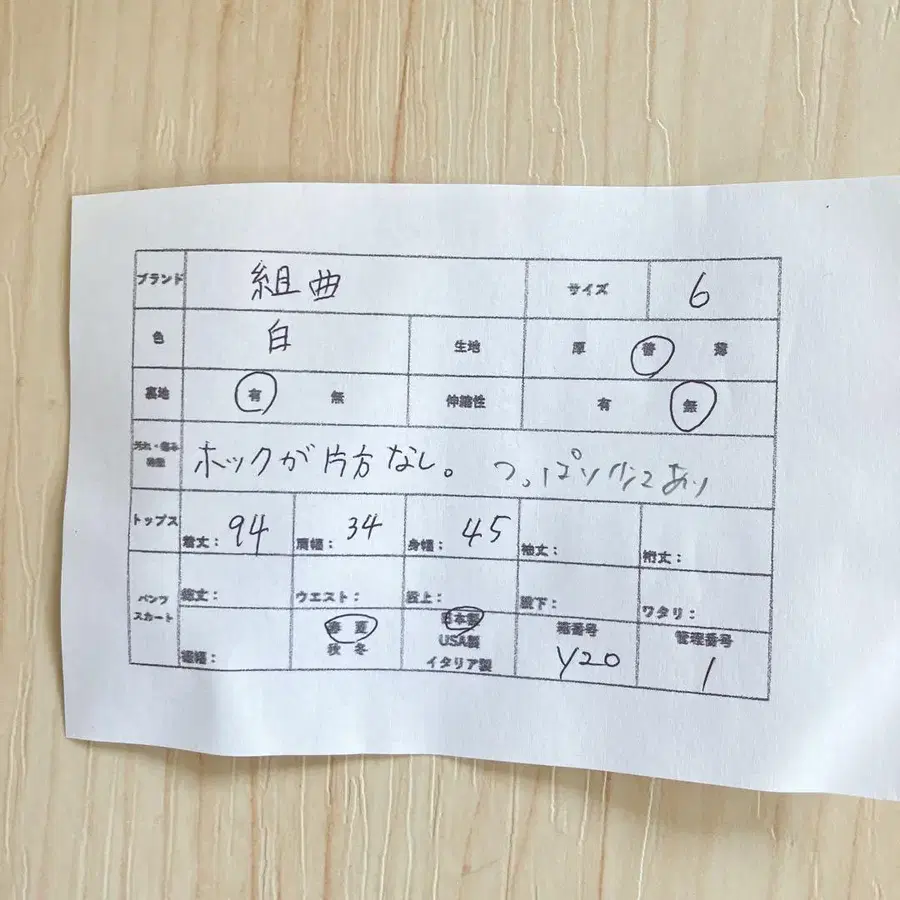 ブランド 組曲 サイズ 6
色 白 生地 厚 普 薄
裏地 有 無 伸縮性 有 無
汚れ・傷み
ホックが片方なし。 つっぱり少々あり
トップス 着丈： 94 肩幅： 34 身幅： 45 袖丈： 裄丈：
パンツ スカート 総丈： ウエスト： 股上： 股下： ワタリ：
裾幅： 春 夏 日本製 箱番号 管理番号
秋 冬 USA製 Y20 1
イタリア製